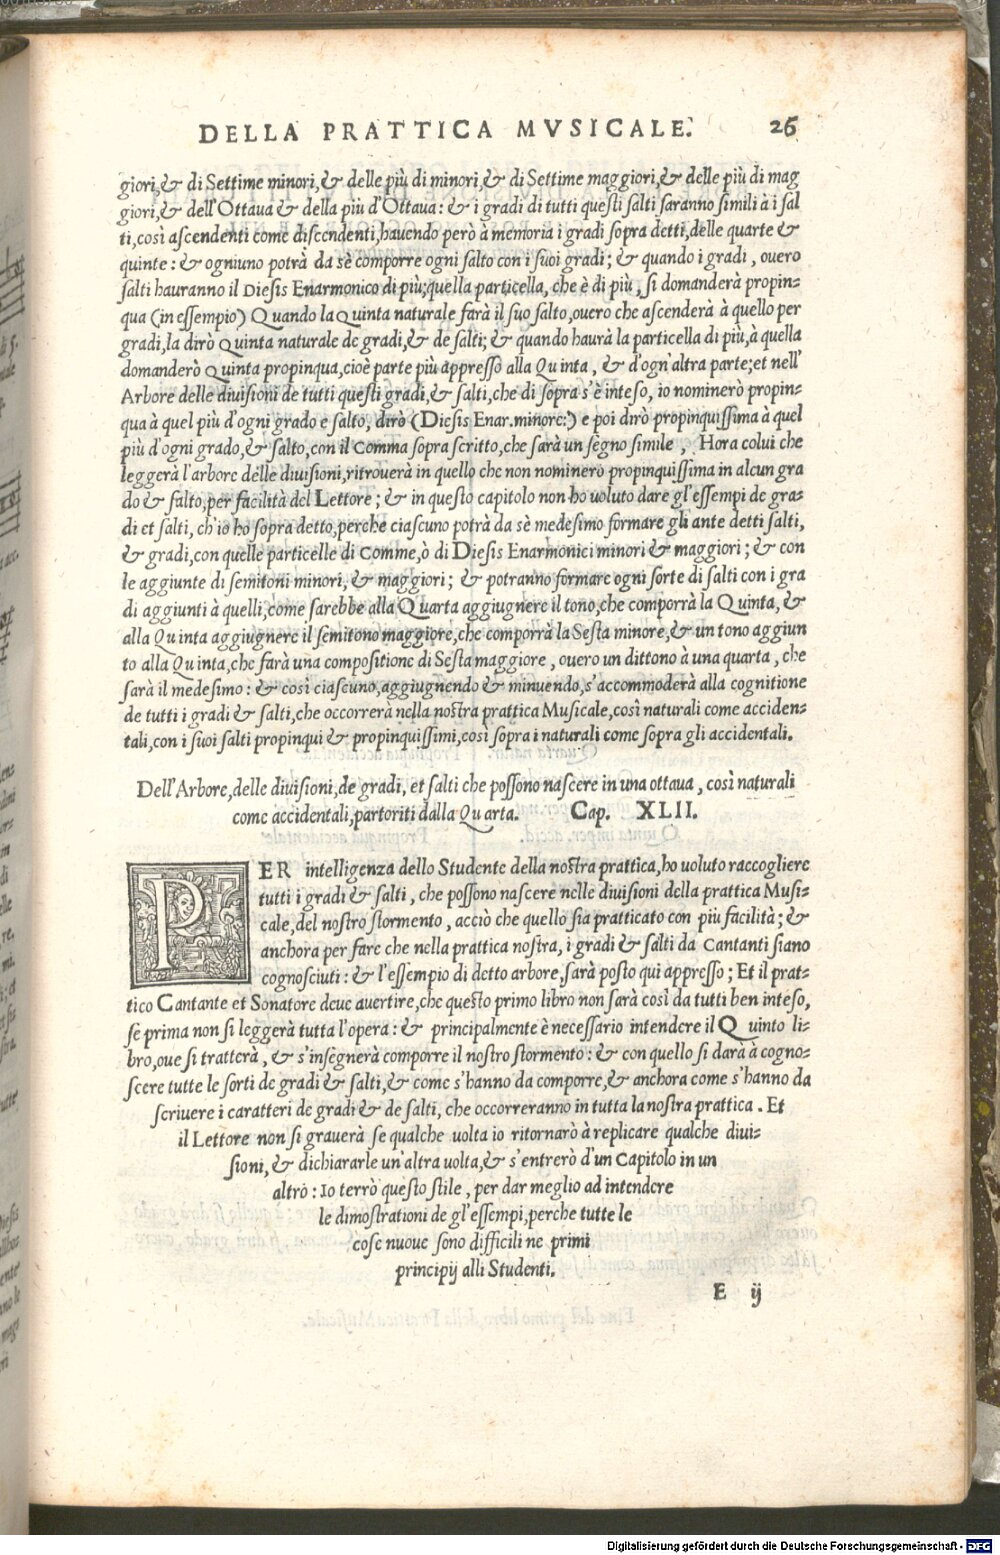 DELLA PRATTICA MVSICALE. 26
giori,& di Settime minori,& delle più di minori,& di Settime maggiori,& delle più di mag
giori,& dell'Ottaua & della più d'Ottaua: & i gradi di tutti questi salti saranno simili à i sal
ti,così ascendenti come discendenti,hauendo però à memoria i gradi sopra detti,delle quarte &
quinte: & ogniuno potrà da sè comporre ogni salto con i suoi gradi; & quando i gradi, ouero
salti hauranno il Diesis Enarmonico di più;quella particella, che è di più, si domanderà propin-
qua (in essempio) Quando la Quinta naturale farà il suo salto,ouero che ascenderà à quello per
gradi,la dirò Quinta naturale de gradi,& de salti; & quando haurà la particella di più,à quella
domanderò Quinta propinqua,cioè parte più appresso alla Quinta, & d'ogn'altra parte;et nell'
Arbore delle diuisioni de tutti questi gradi,& salti,che di sopra s'è inteso, io nominerò propin-
qua à quel più d'ogni grado e salto, dirò (Diesis Enar.minore:) e poi dirò propinquissima à quel
più d'ogni grado,& salto,con il Comma sopra scritto,che sarà un segno simile , Hora colui che
leggerà l'arbore delle diuisioni,ritrouerà in quello che non nominerò propinquissima in alcun gra
do & salto,per facilità del Lettore; & in questo capitolo non ho uoluto dare gl'essempi de gra-
di et salti, ch'io ho sopra detto,perche ciascuno potrà da sè medesimo formare gli ante detti salti,
& gradi,con quelle particelle di Comme,ò di Diesis Enarmonici minori & maggiori; & con
le aggiunte di semitoni minori, & maggiori; & potranno formare ogni sorte di salti con i gra
di aggiunti à quelli,come sarebbe alla Quarta aggiugnere il tono,che comporrà la Quinta, &
alla Quinta aggiugnere il semitono maggiore,che comporrà la Sesta minore,& un tono aggiun
to alla Quinta,che farà una compositione di Sesta maggiore, ouero un dittono à una quarta, che
sarà il medesimo: & così ciascuno,aggiugnendo & minuendo,s'accommoderà alla cognitione
de tutti i gradi & salti,che occorrerà nella nostra prattica Musicale,così naturali come acciden-
tali,con i suoi salti propinqui & propinquissimi,così sopra i naturali come sopra gli accidentali.
Dell'Arbore,delle diuisioni,de gradi, et salti che possono nascere in una ottaua, così naturali
come accidentali,partoriti dalla Quarta. Cap. XLII.
PER intelligenza dello Studente della nostra prattica,ho uoluto raccogliere
tutti i gradi & salti, che possono nascere nelle diuisioni della prattica Musi-
cale,del nostro stormento, acciò che quello sia pratticato con più facilità; &
anchora per fare che nella prattica nostra,i gradi & salti da Cantanti siano
cognosciuti: & l'essempio di detto arbore,sarà posto qui appresso; Et il prat-
tico Cantante et Sonatore deue auertire,che questo primo libro non sarà così da tutti ben inteso,
se prima non si leggerà tutta l'opera: & principalmente è necessario intendere il Quinto li-
bro,oue si tratterà, & s'insegnerà comporre il nostro stormento: & con quello si darà à cogno-
scere tutte le sorti de gradi & salti,& come s'hanno da comporre,& anchora come s'hanno da
scriuere i caratteri de gradi & de salti, che occorreranno in tutta la nostra prattica. Et
il Lettore non si grauerà se qualche uolta io ritornarò à replicare qualche diui-
sioni, & dichiararle un'altra uolta,& s'entrerò d'un Capitolo in un
altro: Io terrò questo stile, per dar meglio ad intendere
le dimostrationi de gl'essempi,perche tutte le
cose nuoue sono difficili ne primi
principij alli Studenti.
E ij
Digitalisierung gefördert durch die Deutsche Forschungsgemeinschaft - DFG